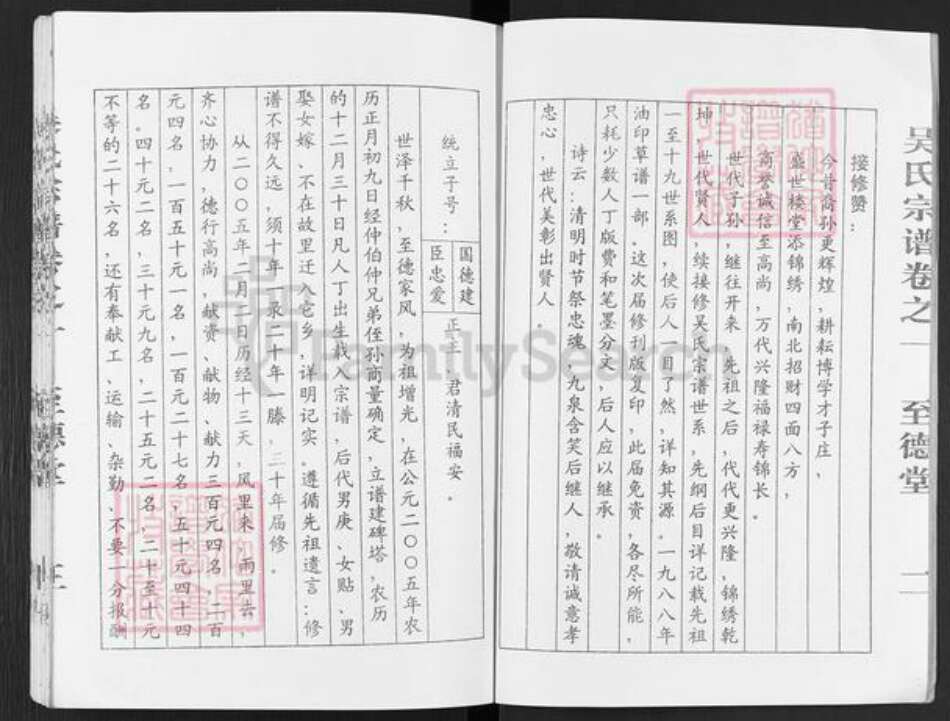 吴氏宗谱卷之一 至德堂 一
接修赞：
今昔裔孙更辉煌，耕耘博学才子庄，
盛世楼堂添锦绣，南北招财四面八方，
商誉诚信至高尚，万代兴隆福禄寿锦长。
世代子孙，继往开来，先祖之后，代代更兴隆，锦绣乾
坤，世代贤人，续接修吴氏宗谱世系，先纲后目详记载先祖
一至十九世系图，使后人一目了然，详知其源。一九八八年
油印草谱一部。这次届修刊版复印，此届免资，各尽所能，
只耗少数人丁版费和笔墨分文，后人应以继承。
诗云：清明时节祭忠魂，九泉含笑后继人，敬请诚意孝
忠心，世代美彰出贤人。
统立子号：
国德建
臣忠爱
正主：君清民福安。
世泽千秋，至德家风，为祖增光，在公元二00五年农
历正月初九日经仲伯仲兄弟侄孙商量确定，立谱建碑塔，农历
的十二月三十日凡人丁出生载入宗谱，后代男庚、女贴、男
娶女嫁、不在故里迁入它乡，详明记实。遵循先祖遗言：修
谱不得久远，须十年一录二十年一腾，三十年届修。
从二00五年二月二日历经十三天，风里来，雨里去，
齐心协力，德行高尚，献资、献物、献力三百元四名，二百
元四名，一百五十元一名，一百元二十七名，五十元四十四
名。四十元二名，三十元九名，二十五元二名，二十至十元
不等的二十六名，还有奉献工、运输、杂勤、不要一分报酬
FamilySearch